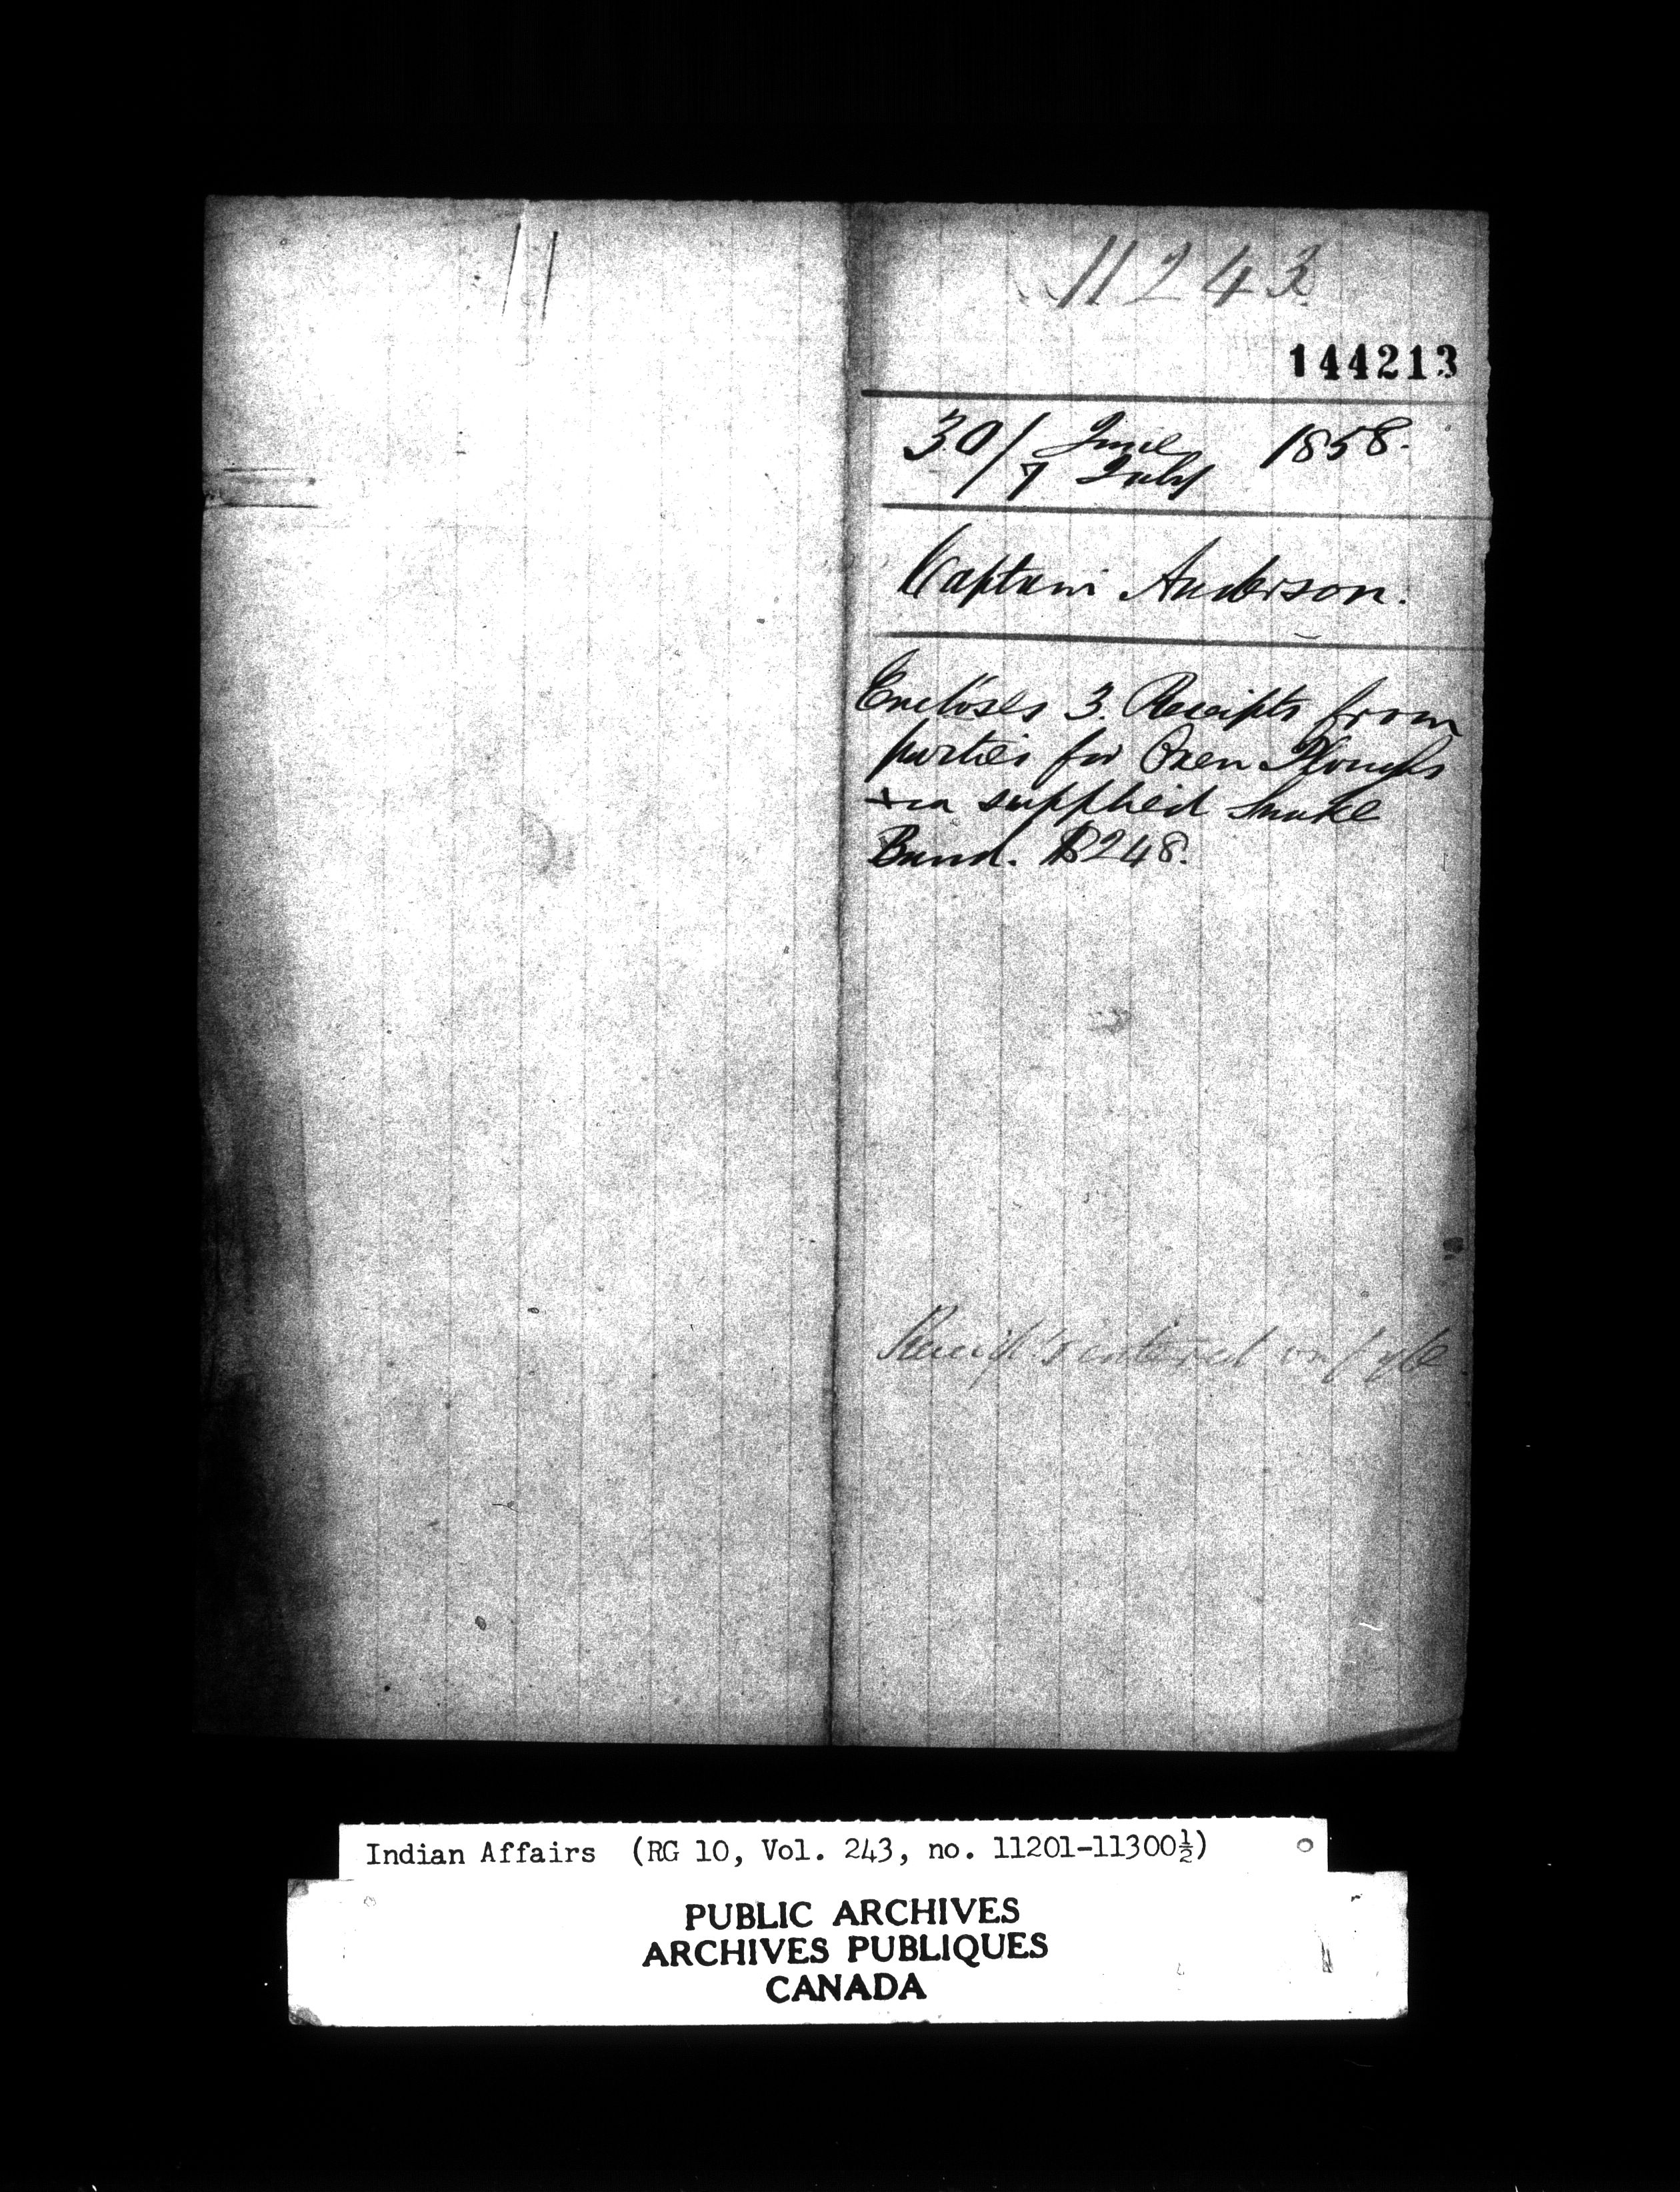 11243
144213
30/ June 1858.
/7 July
Captain Anderson.
Encloses 3. Receipts from
parties for Oxen Ploughs
&ca supplied Snake
Band. $248.
Receipts entered on fyle
Indian Affairs (RG 10, Vol. 243, no. 11201-11300½)
PUBLIC ARCHIVES
ARCHIVES PUBLIQUES
CANADA